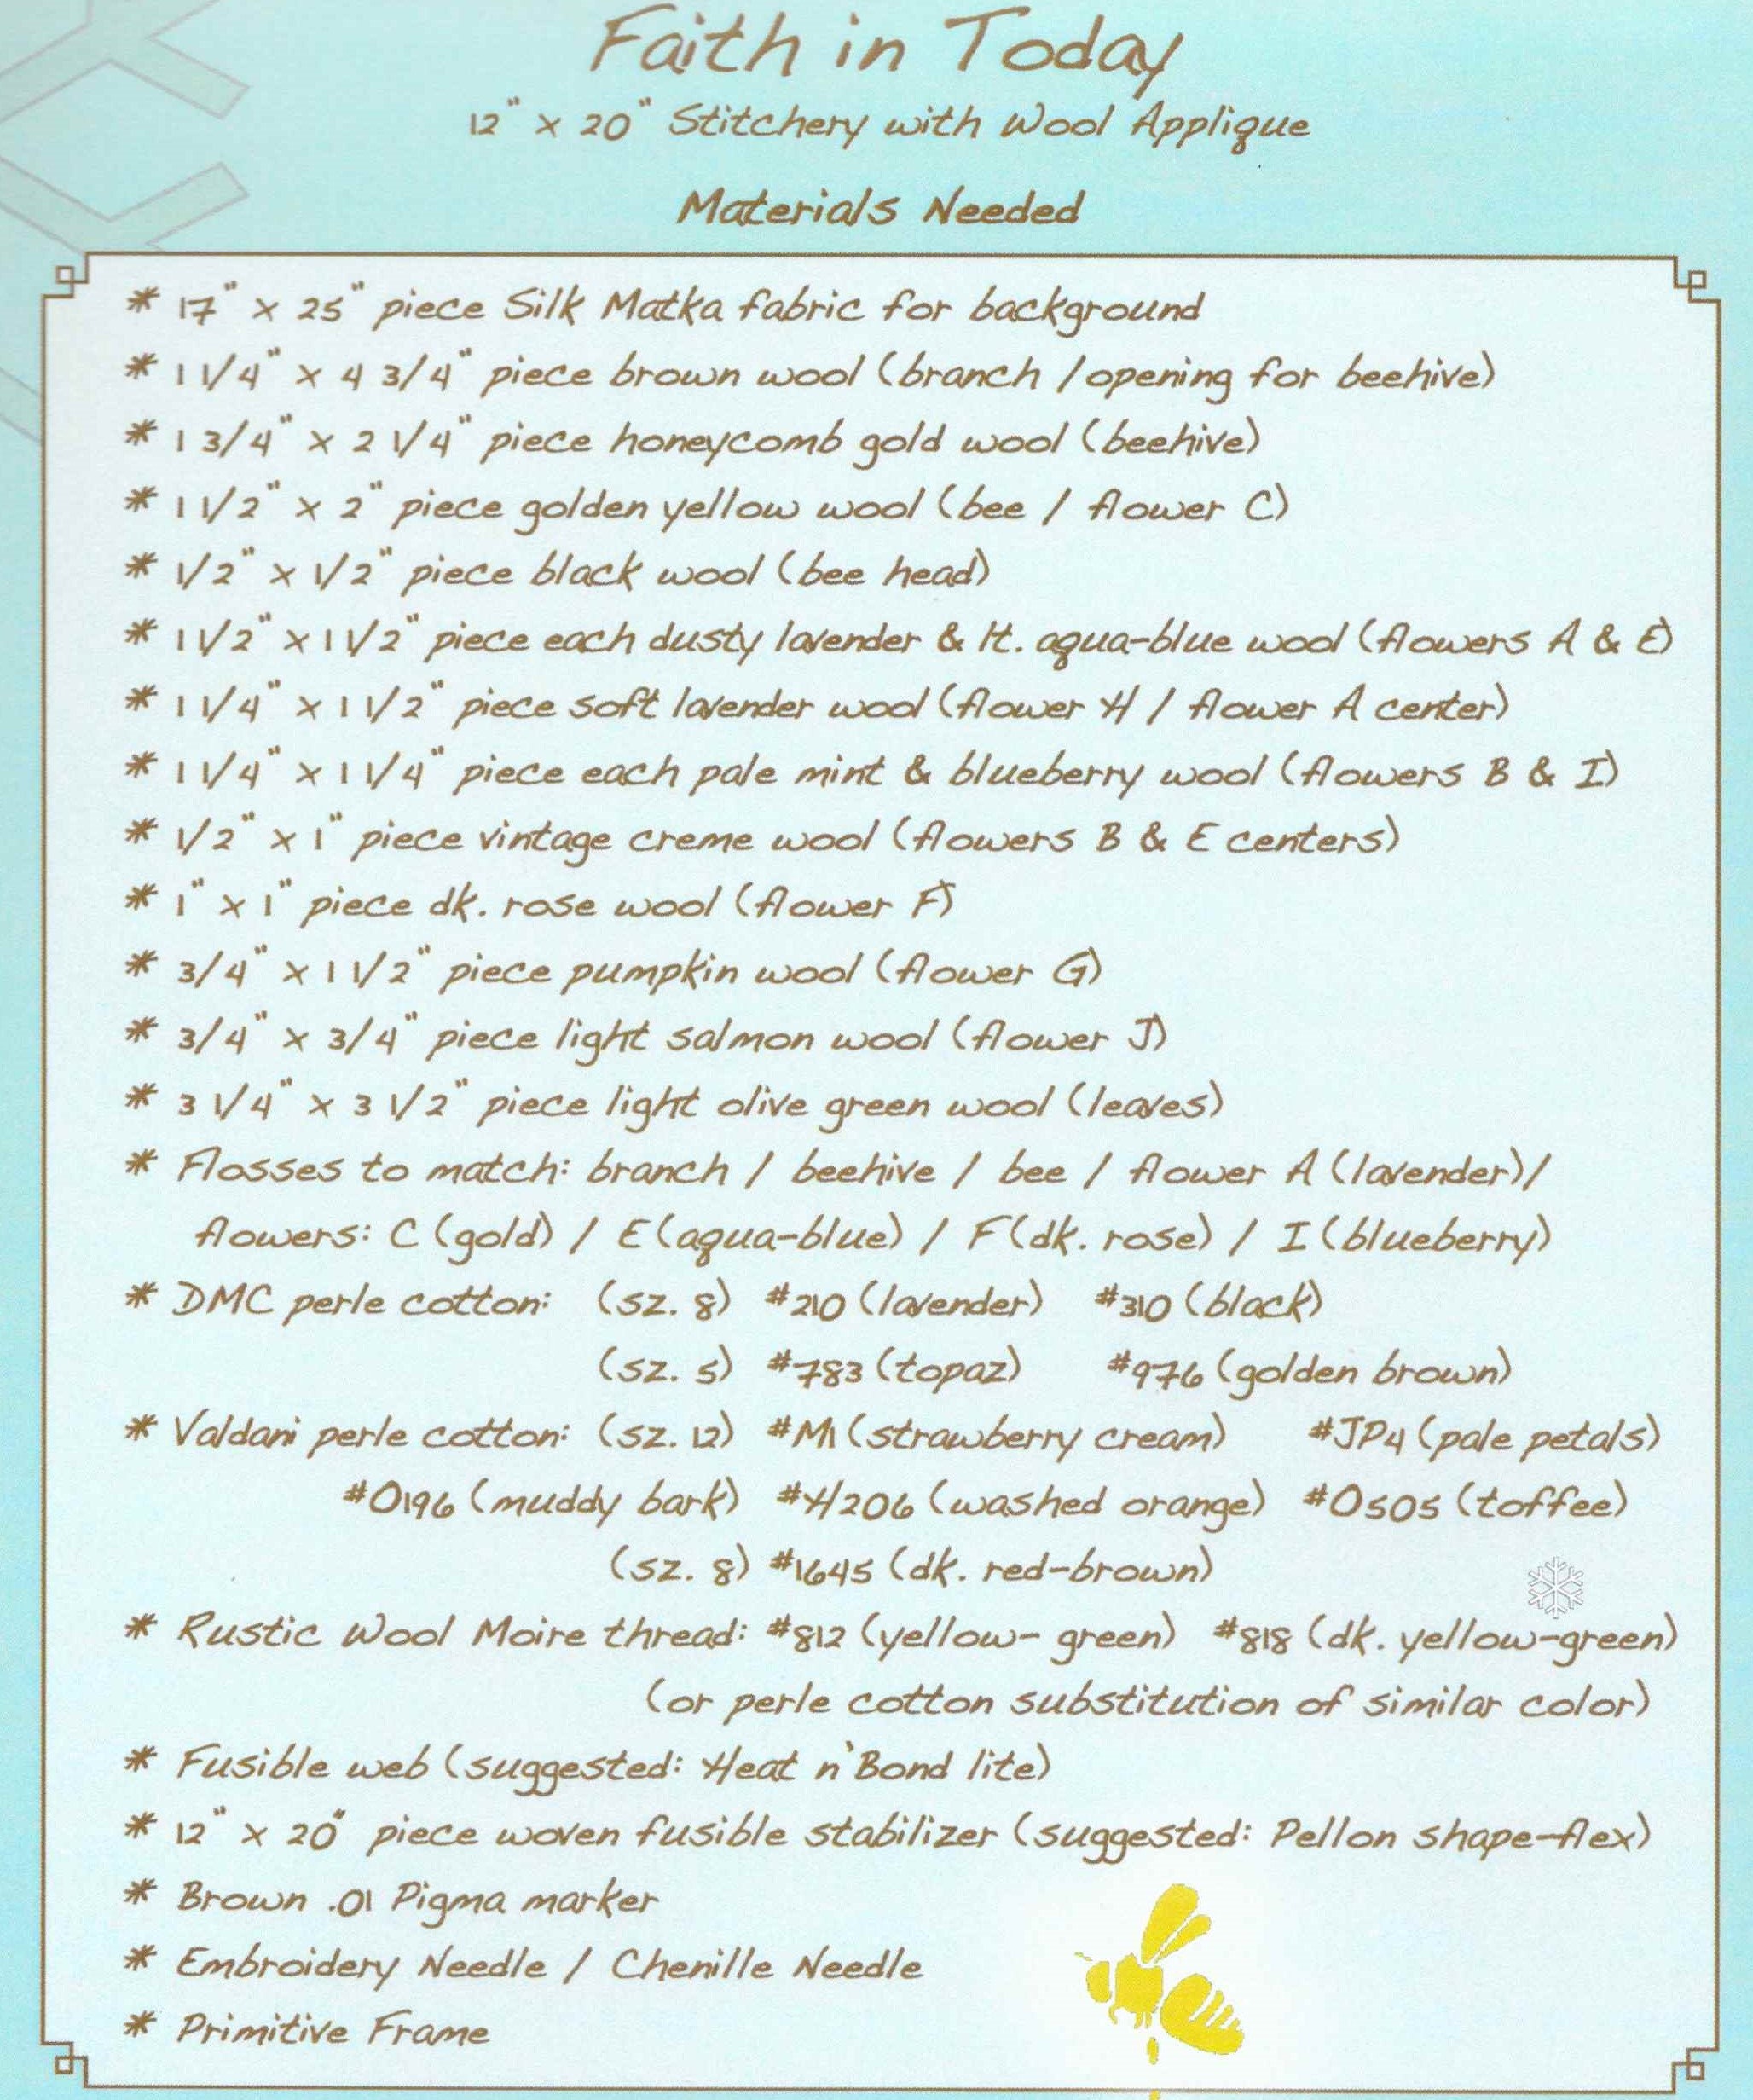 Faith in Today
12" x 20" Stitchery with Wool Applique
Materials Needed
* 17" x 25" piece Silk Matka fabric for background
* 1 1/4" x 4 3/4" piece brown wool (branch / opening for beehive)
* 1 3/4" x 2 1/4" piece honeycomb gold wool (beehive)
* 1 1/2" x 2" piece golden yellow wool (bee / flower C)
* 1/2" x 1/2" piece black wool (bee head)
* 1 1/2" x 1 1/2" piece each dusty lavender & lt. aqua-blue wool (flowers A & E)
* 1 1/4" x 1 1/2" piece soft lavender wool (flower H / flower A center)
* 1 1/4" x 1 1/4" piece each pale mint & blueberry wool (flowers B & I)
* 1/2" x 1" piece vintage creme wool (flowers B & E centers)
* 1" x 1" piece dk. rose wool (flower F)
* 3/4" x 1 1/2" piece pumpkin wool (flower G)
* 3/4" x 3/4" piece light salmon wool (flower J)
* 3 1/4" x 3 1/2" piece light olive green wool (leaves)
* Flosses to match: branch / beehive / bee / flower A (lavender) /
flowers: C (gold) / E (aqua-blue) / F (dk. rose) / I (blueberry)
* DMC perle cotton: (sz. 8) #210 (lavender) #310 (black)
(sz. 5) #783 (topaz) #976 (golden brown)
* Valdani perle cotton: (sz. 12) #M1 (strawberry cream) #JP4 (pale petals)
#O196 (muddy bark) #H206 (washed orange) #O505 (toffee)
(sz. 8) #1645 (dk. red-brown)
* Rustic Wool Moire thread: #812 (yellow- green) #818 (dk. yellow-green)
(or perle cotton substitution of similar color)
* Fusible web (suggested: Heat n' Bond lite)
* 12" x 20" piece woven fusible stabilizer (suggested: Pellon shape-flex)
* Brown .01 Pigma marker
* Embroidery Needle / Chenille Needle
* Primitive Frame